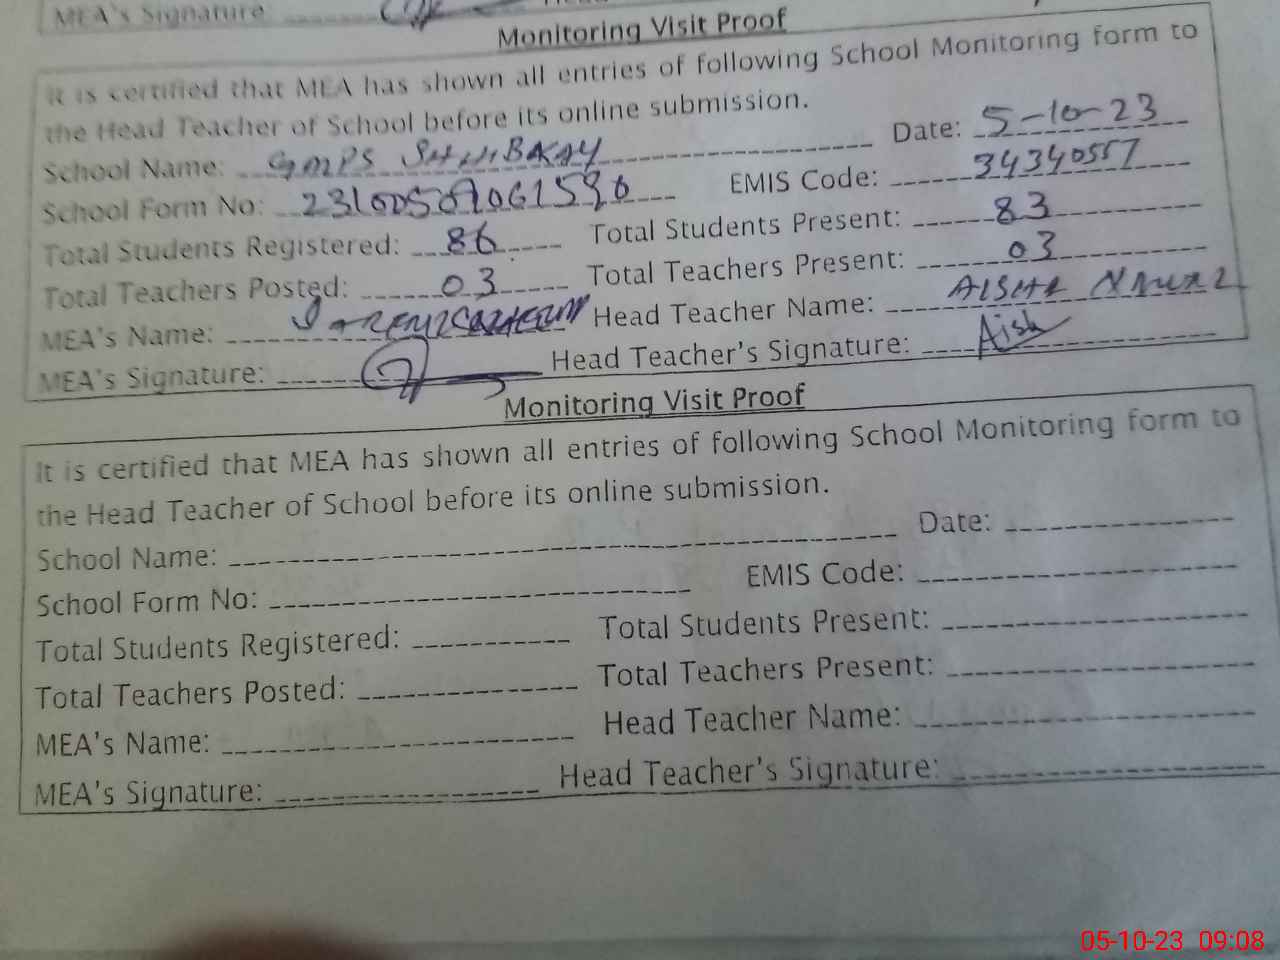 MEA's Signature
Monitoring Visit Proof
It is certified that MEA has shown all entries of following School Monitoring form to
the Head Teacher of School before its online submission.
School Name: GMPS Date: 5-10-23
School Form No: EMIS Code: 34340557
Total Students Registered: 86 Total Students Present: 83
Total Teachers Posted: 03 Total Teachers Present: 03
MEA's Name: Head Teacher Name: AISHA
MEA's Signature: Head Teacher's Signature: Aish
Monitoring Visit Proof
It is certified that MEA has shown all entries of following School Monitoring form to
the Head Teacher of School before its online submission.
School Name: Date:
School Form No: EMIS Code:
Total Students Registered: Total Students Present:
Total Teachers Posted: Total Teachers Present:
MEA's Name: Head Teacher Name:
MEA's Signature: Head Teacher's Signature:
05-10-23 09:08